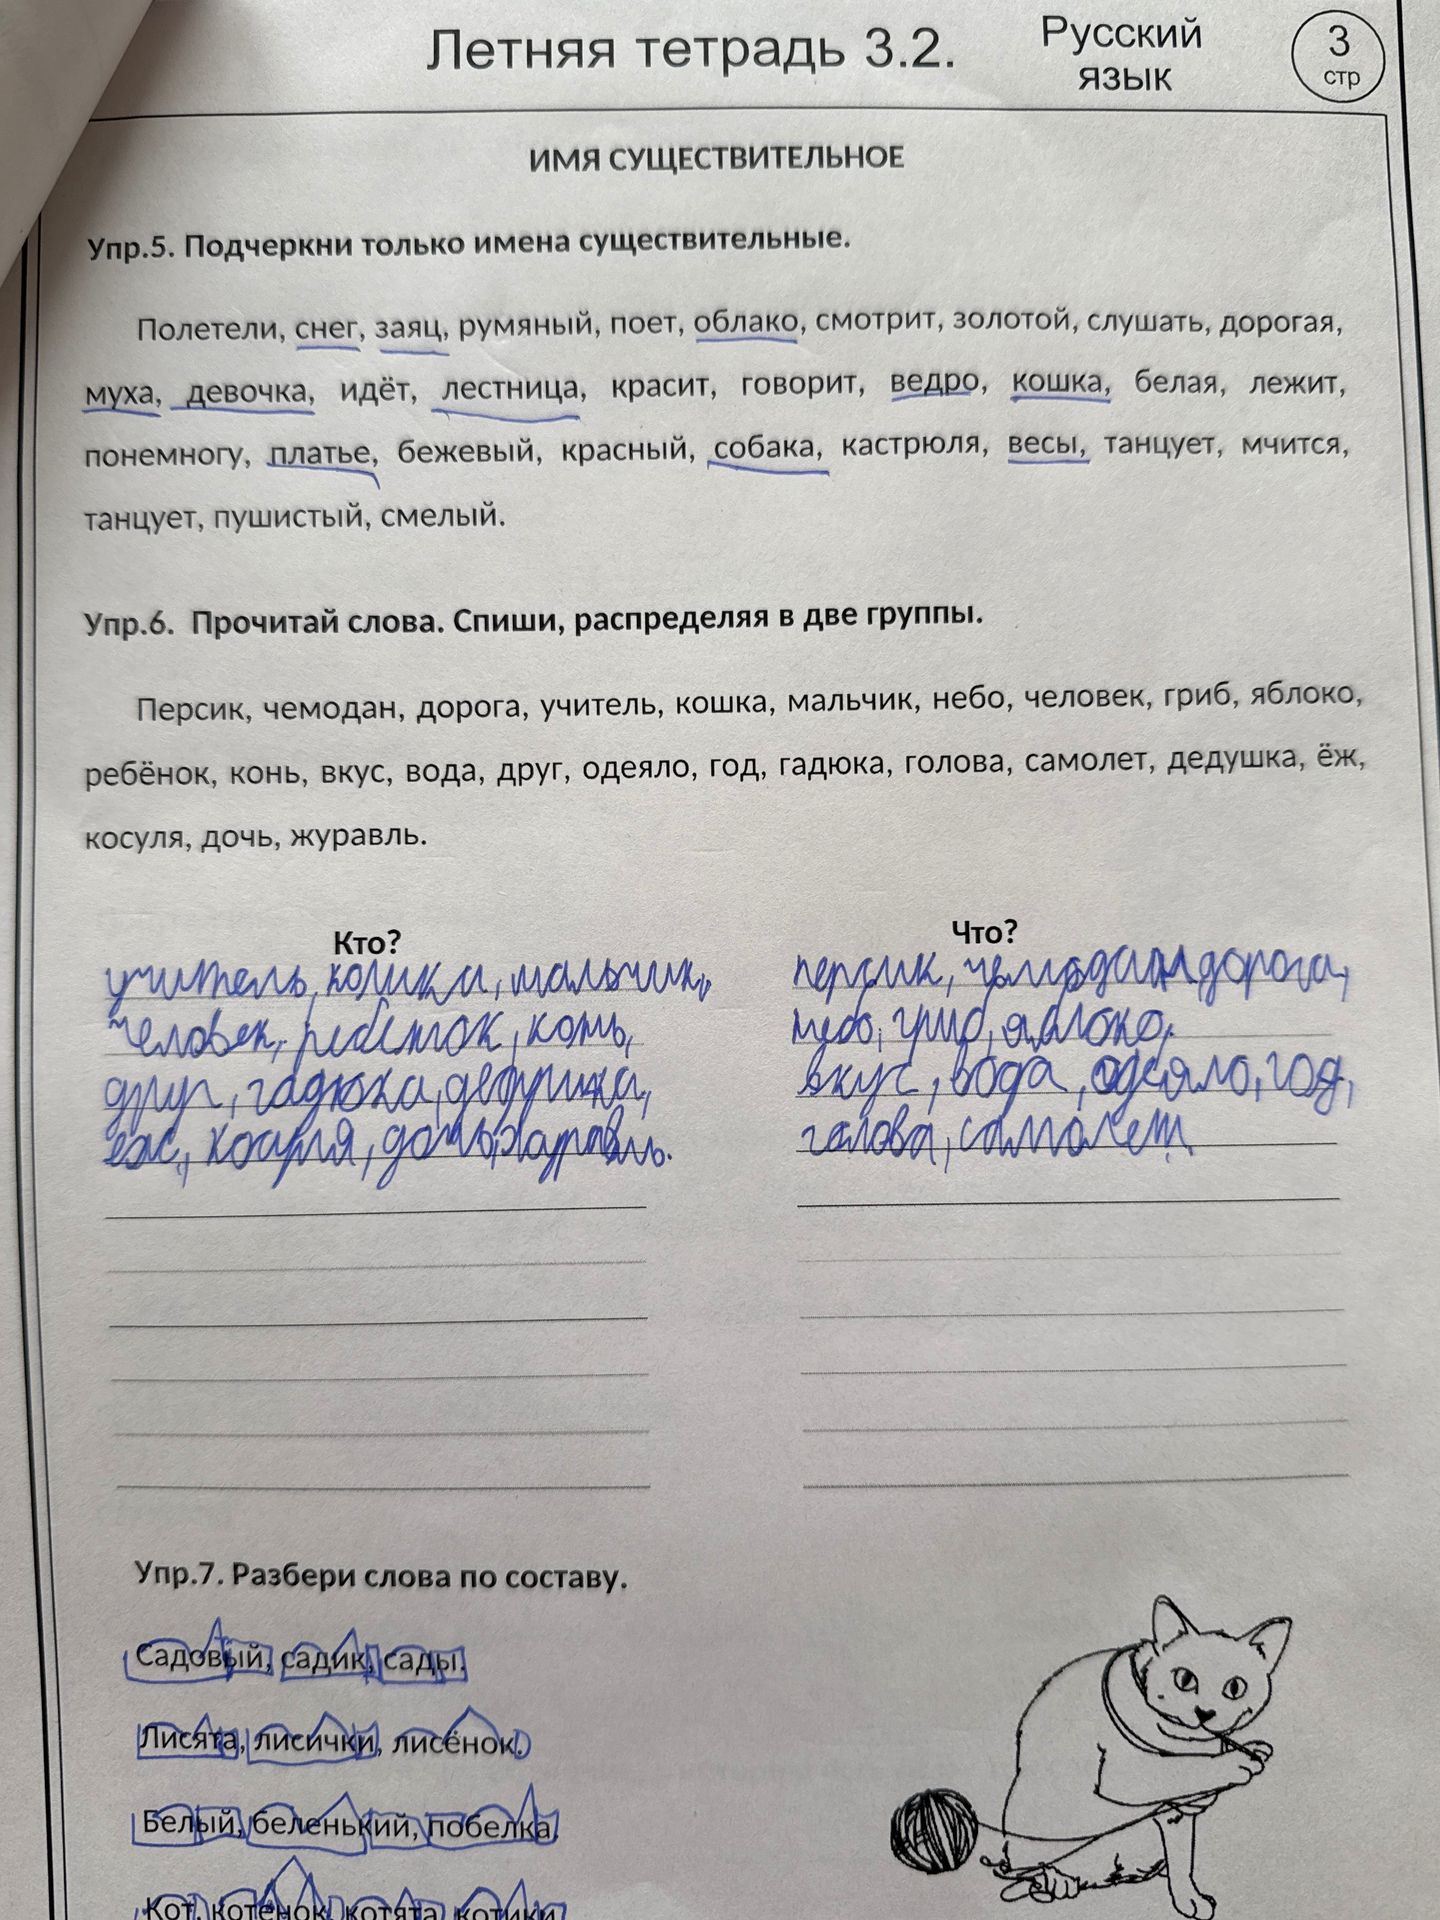 Летняя тетрадь 3.2.
Русский
язык
3
стр
ИМЯ СУЩЕСТВИТЕЛЬНОЕ
Упр.5. Подчеркни только имена существительные.
Полетели, снег, заяц, румяный, поет, облако, смотрит, золотой, слушать, дорогая,
муха, девочка, идёт, лестница, красит, говорит, ведро, кошка, белая, лежит,
понемногу, платье, бежевый, красный, собака, кастрюля, весы, танцует, мчится,
танцует, пушистый, смелый.
Упр.6. Прочитай слова. Спиши, распределяя в две группы.
Персик, чемодан, дорога, учитель, кошка, мальчик, небо, человек, гриб, яблоко,
ребёнок, конь, вкус, вода, друг, одеяло, год, гадюка, голова, самолет, дедушка, ёж,
косуля, дочь, журавль.
Кто?
учитель, кошка, мальчик,
человек, ребёнок, конь,
друг, гадюка, дедушка,
еж, косуля, дочь,
Что?
персик, чемодан дорога,
небо, гриб, яблоко,
вкус, вода, одеяло, год,
голова, самолет
Упр.7. Разбери слова по составу.
Садовый, садик, сады.
Лисята, лисички, лисёнок.
Белый, беленький, побелка.
Кот, котёнок, котята, котики